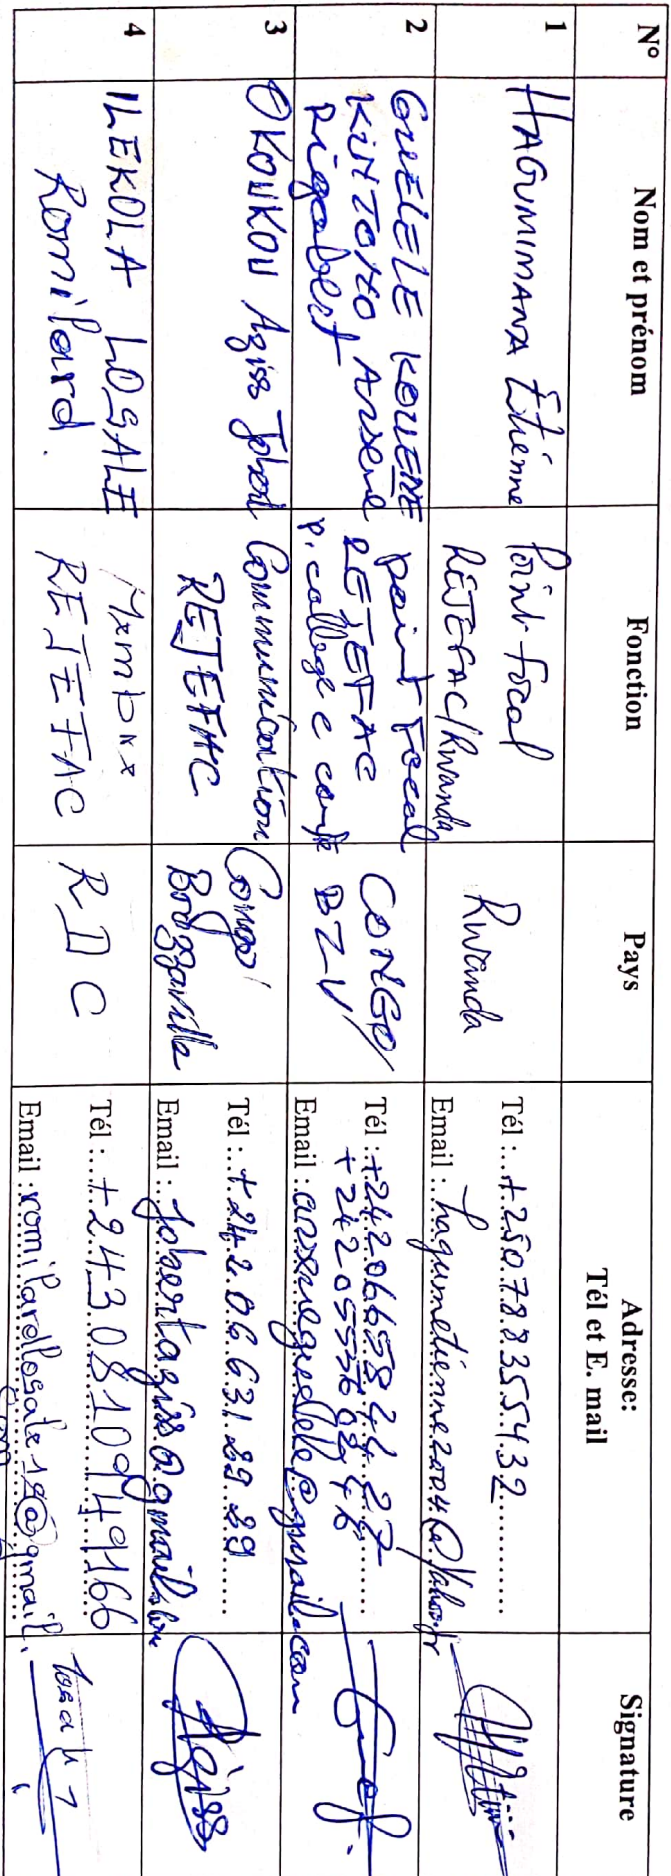 N° Nom et prénom Fonction Pays Adresse: Tél et E. mail Signature
1
HAGUMIMANA Etienne
Point focal
REJEFAC/Rwanda
Rwanda
Tél :..+250788355432..........
Email :..hagumetienne2004@yahoo.fr
2
GUELELE KOUENE
KINTONO Arsene
Rigobert
point Focal
REJEFAC
CONGO/
BZV
Tél :
Email : @gmail.com
3
OKOUKOU Agiss Jobert
Communication
REJEFAC
Congo/
Brazzaville
Tél :..+242.06.631.89.29......
Email :..jobertagiss@gmail.com
Agiss
4
ILEKOLA LOSALE
Romilard.
Membre
REJEFAC
RDC
Tél :..+2430810949166
Email :romilardlosale19@gmail.